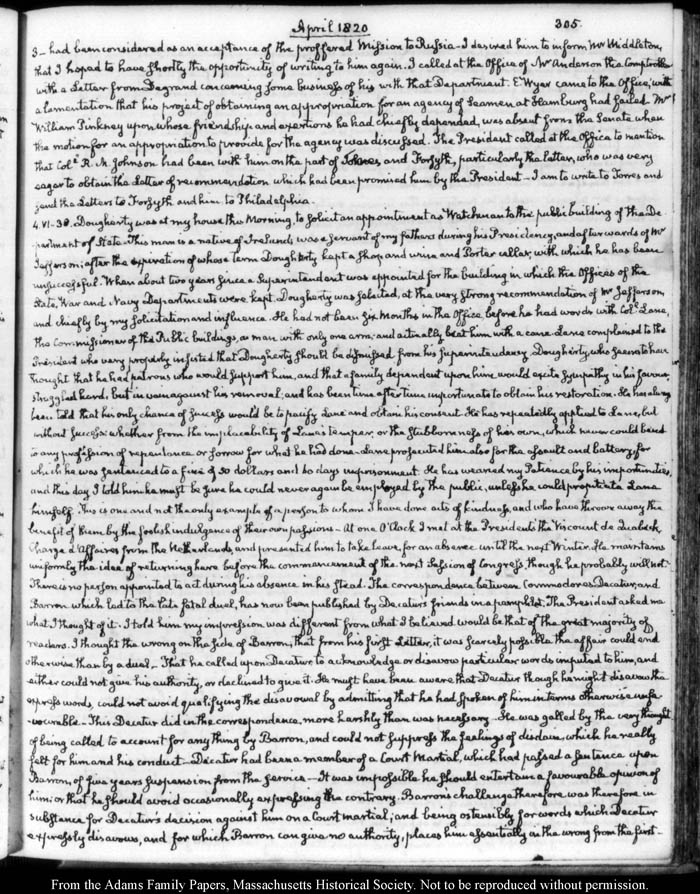 April 1820
305.
3_ had been considered as an acceptance of the proffered Mission to Russia_I desired him to inform Mr Middleton,
that I hoped to have shortly the opportunity of writing to him again. I called at the Office of Mr Anderson the Comptroller
with a Letter from Degrand concerning some business of his with that Department. E. Wyer came to the Office, with
a lamentation that his project of obtaining an appropriation for an agency of Seamen at Hamburg had failed. Mr
William Pinkney upon whose friendship and exertions he had chiefly depended, was absent from the Senate when
the motion for an appropriation to provide for the agency was discussed. The President called at the Office to mention
that Coll. R. M. Johnson had been with him on the part of Torres and Forsyth, particularly the latter, who was very
eager to obtain the Letter of recommendation which had been promised him by the President_I am to write to Torres and
send the Letters to Forsyth and him to Philadelphia.
4. VI-30. Dougherty was at my house this Morning, to solicit an appointment as Watchman to the public building of the De-
partment of State. This man is a native of Ireland, was a servant of my fathers during his Presidency, and afterwards of Mr
Jefferson; after the expiration of whose term Dougherty kept a shop, and wine and Porter cellar, with which he has been
unsuccessful. When about two years since a Superintendent was appointed for the building in which the Offices of the
State, War and Navy Departments were kept. Dougherty was selected, at the very strong recommendation of Mr Jefferson,
and chiefly by my solicitation and influence. He had not been six Months in the Office, before he had words with Coll. Lane,
the Commissioner of the Public buildings, a man with only one arm; and actually beat him with a cane. Lane complained to the
President who very properly insisted that Dougherty should be dismissed from his Superintendency. Dougherty who seems to have
thought that he had patrons who would support him, and that a family dependent upon him would excite sympathy in his favour,
struggled hard, but in vain against his removal; and has been time after time importunate to obtain his restoration. He has always
been told that his only chance of success would be to pacify Lane and obtain his consent. He has repeatedly applied to Lane, but
without success; whether from the implacability of Lane's temper, or the stubbornness of his own, which never could bend
to any profession of repentance or sorrow for what he had done_Lane prosecuted him also for the assault and battery, for
which he was sentenced to a fine of 30 dollars and 60 days imprisonment. He has wearied my Patience by his importunities,
and this day I told him he must be sure he could never again be employed by the public, unless he could propitiate Lane
himself. This is one and not the only example of a person to whom I have done acts of kindness, and who have thrown away the
benefit of them by the foolish indulgence of their own passions_At one O'Clock I met at the President's the Viscount de Quabeck
Chargé d'Affaires from the Netherlands, and presented him to take leave, for an absence until the next Winter. He maintains
uniformly the idea of returning here before the commencement of the next Session of Congress, though he probably will not.
There is no person appointed to act during his absence in his stead. The correspondence between Commodores Decatur, and
Barron which led to the late fatal duel, has now been published by Decatur's friends in a pamphlet. The President asked me
what I thought of it. I told him my impression was different from what I believed would be that of the great majority of
readers. I thought the wrong on the side of Barron; that from his first Letter, it was scarcely possible the affair could end
otherwise than by a duel_That he called upon Decatur to acknowledge or disavow particular words imputed to him, and
either could not give his authority, or declined to give it. He must have been aware that Decatur though he might disavow the
express words, could not avoid qualifying the disavowal by admitting that he had spoken of him in terms otherwise unfa-
vourable_This Decatur did in the correspondence, more harshly than was necessary_He was galled by the very thought
of being called to account for any thing by Barron, and could not suppress the feelings of disdain, which he really
felt for him and his conduct_Decatur had been a member of a Court Martial, which had passed a sentence upon
Barron, of five years suspension from the service_It was impossible he should entertain a favourable opinion of
him; or that he should avoid occasionally expressing the contrary. Barron's challenge therefore was therefore in
substance for Decatur's decision against him on a Court martial; and being ostensibly for words which Decatur
expressly disavows, and for which Barron can give no authority, places him essentially in the wrong from the first_
From the Adams Family Papers, Massachusetts Historical Society. Not to be reproduced without permission.